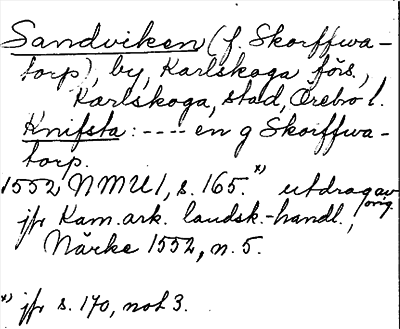 Sandviken (f. Skorffwa-
torp), by, Karlskoga förs.,
Karlskoga, stad, Örebro l.
Knifsta: ---- en g Skorffwa-
torp.
1552 NMU 1, s. 165. x) utdrag av
jfr Kam.ark. landsk.-handl., orig.
Närke 1552, n. 5.
x) jfr s. 170, not 3.